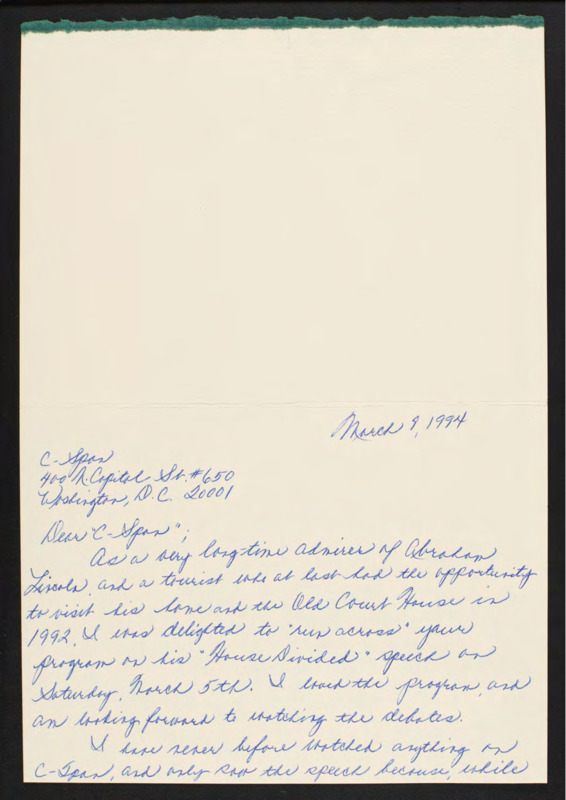 March 9, 1994
C-Span
400 N. Capitol St. #650
Washington, D.C. 20001
Dear "C-Span";
As a very long-time admirer of Abraham
Lincoln, and a tourist who at last had the opportunity
to visit his home and the Old Court House in
1992, I was delighted to "run across" your
program on his "House Divided" speech on
Saturday, March 5th. I loved the program, and
am looking forward to watching the debates.
I have never before watched anything on
C-Span, and only saw the speech because, while